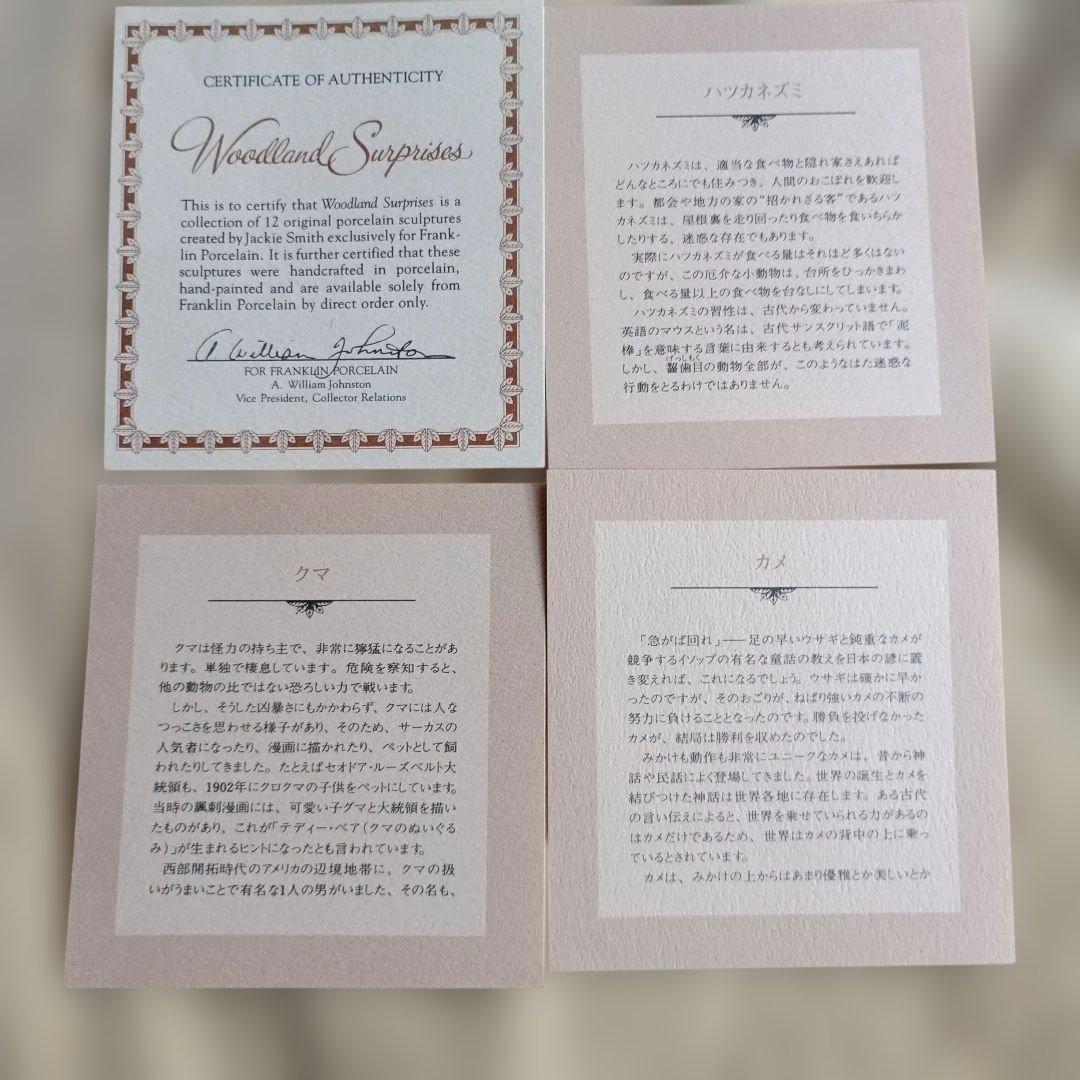 CERTIFICATE OF AUTHENTICITY
Woodland Surprises
This is to certify that Woodland Surprises is a
collection of 12 original porcelain sculptures
created by Jackie Smith exclusively for Frank-
lin Porcelain. It is further certified that these
sculptures were handcrafted in porcelain,
hand-painted and are available solely from
Franklin Porcelain by direct order only.
A William Johnston
FOR FRANKLIN PORCELAIN
A. William Johnston
Vice President, Collector Relations
ハツカネズミ
ハツカネズミは、適当な食べ物と隠れ家さえあれば
どんなところにでも住みつき、人間のおこぼれを歓迎し
ます。都会や地方の家の“招かれざる客”であるハツ
カネズミは、屋根裏を走り回ったり食べ物を食いちらか
したりする、迷惑な存在でもあります。
実際にハツカネズミが食べる量はそれほど多くはない
のですが、この厄介な小動物は、台所をひっかきまわ
し、食べる量以上の食べ物を台なしにしてしまいます。
ハツカネズミの習性は、古代から変わっていません。
英語のマウスという名は、古代サンスクリット語で「泥
棒」を意味する言葉に由来するとも考えられています。
げっしもく
しかし、齧歯目の動物全部が、このようなはた迷惑な
行動をとるわけではありません。
クマ
クマは怪力の持ち主で、非常に獰猛になることがあ
ります。単独で棲息しています。危険を察知すると、
他の動物の比ではない恐ろしい力で戦います。
しかし、そうした凶暴さにもかかわらず、クマには人な
つっこさを思わせる様子があり、そのため、サーカスの
人気者になったり、漫画に描かれたり、ペットとして飼
われたりしてきました。たとえばセオドア・ルーズベルト大
統領も、1902年にクロクマの子供をペットにしています。
当時の諷刺漫画には、可愛い子グマと大統領を描い
たものがあり、これが「テディー・ベア(クマのぬいぐる
み)」が生まれるヒントになったとも言われています。
西部開拓時代のアメリカの辺境地帯に、クマの扱
いがうまいことで有名な1人の男がいました、その名も、
カメ
「急がば回れ」——足の早いウサギと鈍重なカメが
競争するイソップの有名な童話の教えを日本の諺に置
き変えれば、これになるでしょう。ウサギは確かに早か
ったのですが、そのおごりが、ねばり強いカメの不断の
努力に負けることとなったのです。勝負を投げなかった
カメが、結局は勝利を収めたのでした。
みかけも動作も非常にユニークなカメは、昔から神
話や民話によく登場してきました。世界の誕生とカメを
結びつけた神話は世界各地に存在します。ある古代
の言い伝えによると、世界を乗せていられる力があるの
はカメだけであるため、世界はカメの背中の上に乗っ
ているとされています。
カメは、みかけの上からはあまり優雅とか美しいとか